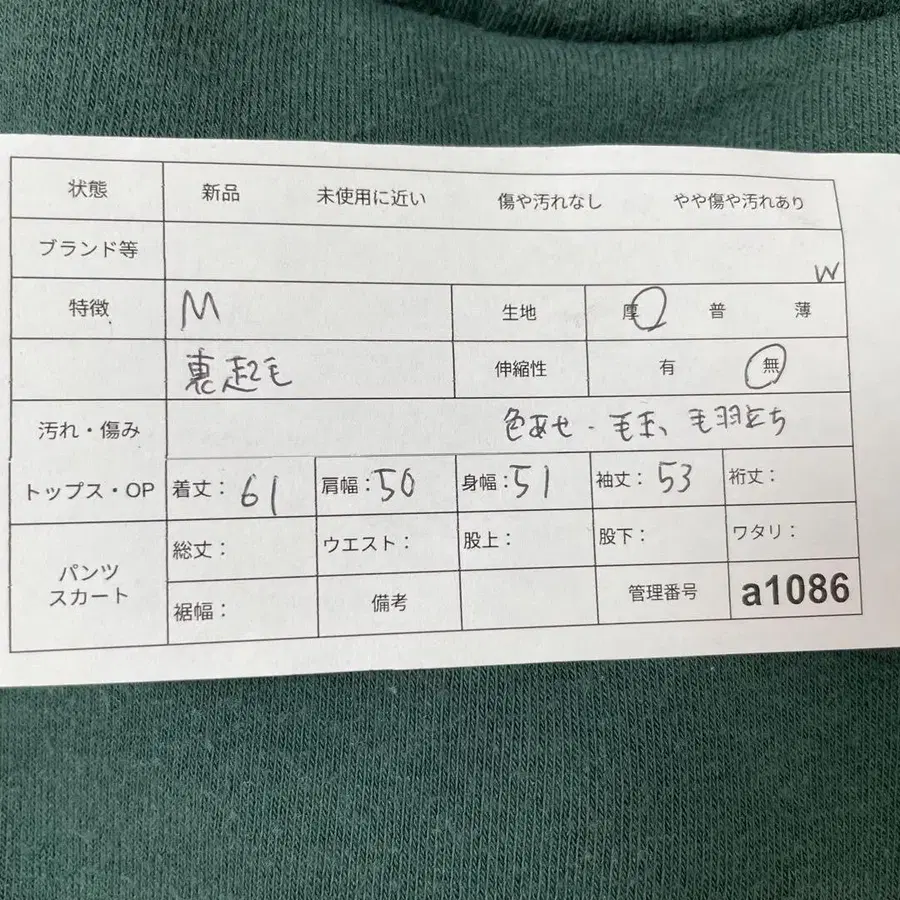 状態 新品 未使用に近い 傷や汚れなし やや傷や汚れあり
ブランド等 W
特徴 M 生地 厚 普 薄
裏起毛 伸縮性 有 無
汚れ・傷み 色あせ・毛玉、毛羽立ち
トップス・OP 着丈：61 肩幅：50 身幅：51 袖丈：53 裄丈：
パンツ スカート 総丈： ウエスト： 股上： 股下： ワタリ：
裾幅： 備考 管理番号 a1086